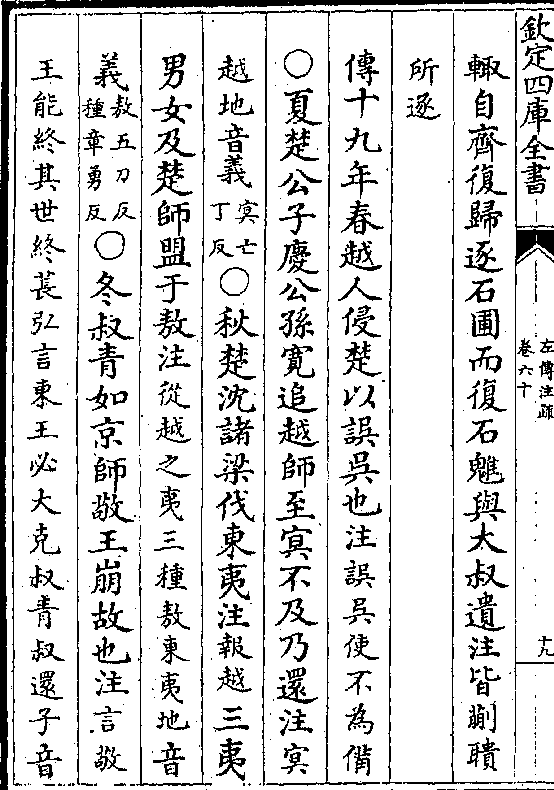 欽定四庫全書
左傳注疏
卷六十
十九
輙自齊復歸逐石圃而復石魋與太叔遺注皆蒯聵
所逐
傳十九年春越人侵楚以誤吳也注誤吳使不為備
○夏楚公子慶公孫寛追越師至冥不及乃還注冥
越地音義冥亡丁反○秋楚沈諸梁伐東夷注報越三夷
男女及楚師盟于敖注從越之夷三種敖東夷地音
義敖五刀反種章勇反○冬叔青如京師敬王崩故也注言敬
王能終其世終萇弘言東王必大克叔青叔還子音